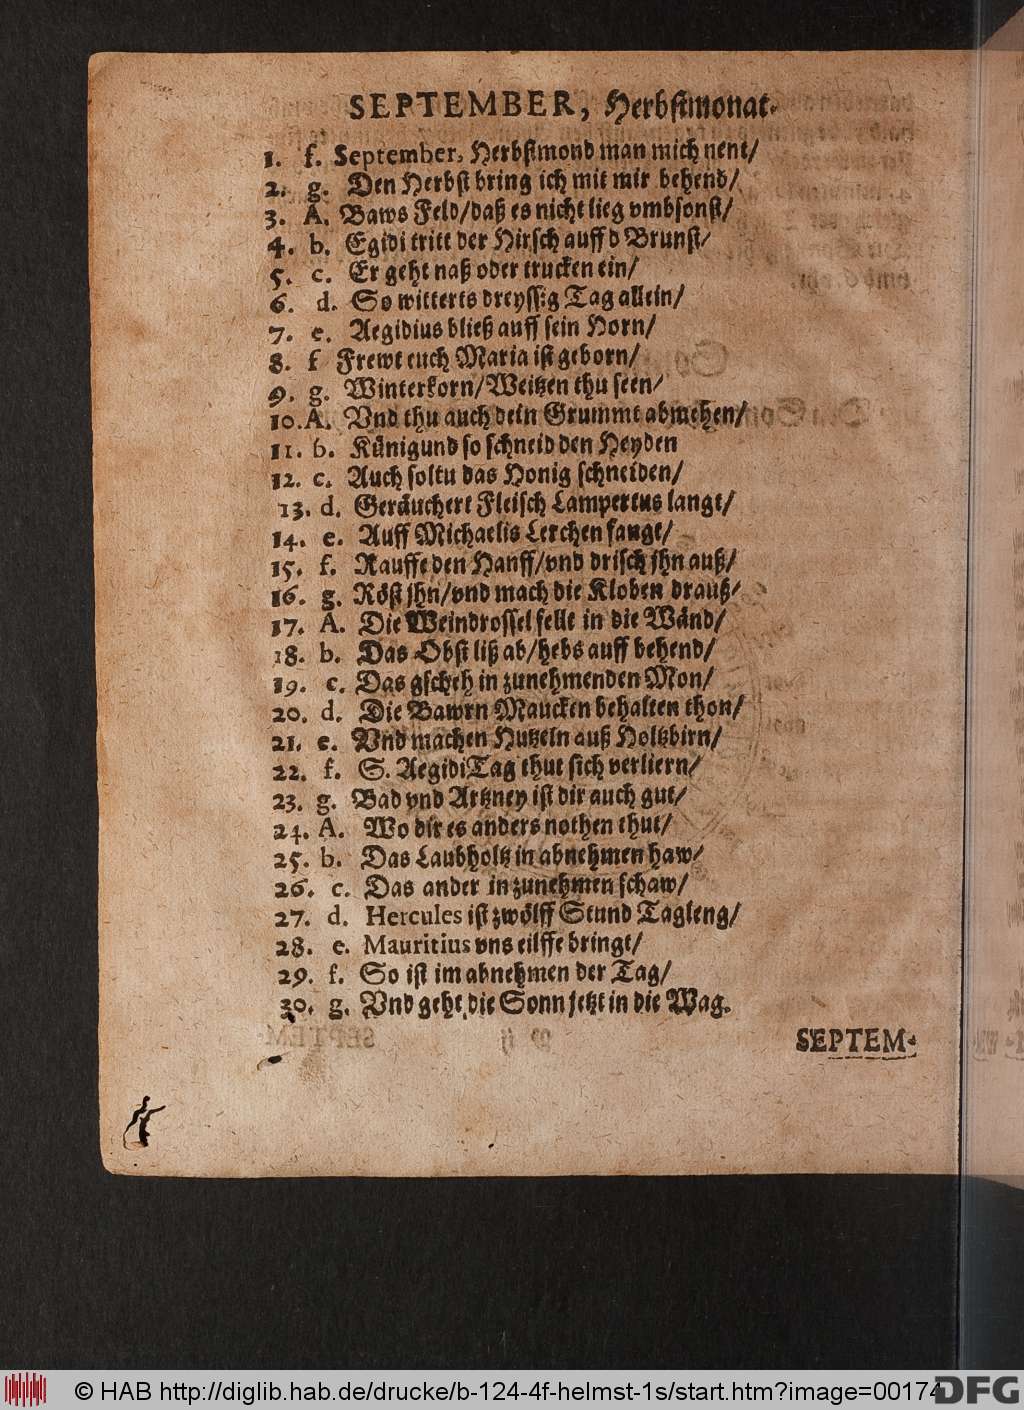 SEPTEMBER, Herbstmonat.
1. f. September, Herbstmond man mich nent/
2. g. Den Herbst bring ich mit mir behend/
3. A. Baws Feld/daß es nicht lieg vmbsonst/
4. b. Egidi tritt der Hirsch auff d Brunst/
5. c. Er geht naß oder trucken ein/
6. d. So witterts dreyssig Tag allein/
7. e. Aegidius bließ auff sein Horn/
8. f Frewt euch Maria ist geborn/
9. g. Winterkorn/Weitzen thu seen/
10. A. Vnd thu auch dein Grummt abmehen/
11. b. Künigund so schneid den Heyden
12. c. Auch soltu das Honig schneiden/
13. d. Geräuchert Fleisch Lampertus langt/
14. e. Auff Michaelis Lerchen fangt/
15. f. Rauffe den Hanff/vnd drisch jhn auß/
16. g. Röst jhn/vnd mach die Kloben drauß/
17. A. Die Weindrossel fellt in die Wänd/
18. b. Das Obst liß ab/hebs auff behend/
19. c. Das gscheh in zunehmenden Mon/
20. d. Die Bawrn Maucken behalten thon/
21. e. Vnd machen Hutzeln auß Holtzbirn/
22. f. S. Aegidi Tag thut sich verliern/
23. g. Bad vnd Artzney ist dir auch gut/
24. A. Wo dir es anders nothen thut/
25. b. Das Laubholtz in abnehmen haw/
26. c. Das ander in zunehmen schaw/
27. d. Hercules ist zwölff Stund Tagleng/
28. e. Mauritius vns eilffe bringt/
29. f. So ist im abnehmen der Tag/
30. g. Vnd geht die Sonn jetzt in die Wag.
SEPTEM-
© HAB http://diglib.hab.de/drucke/b-124-4f-helmst-1s/start.htm?image=00174
DFG